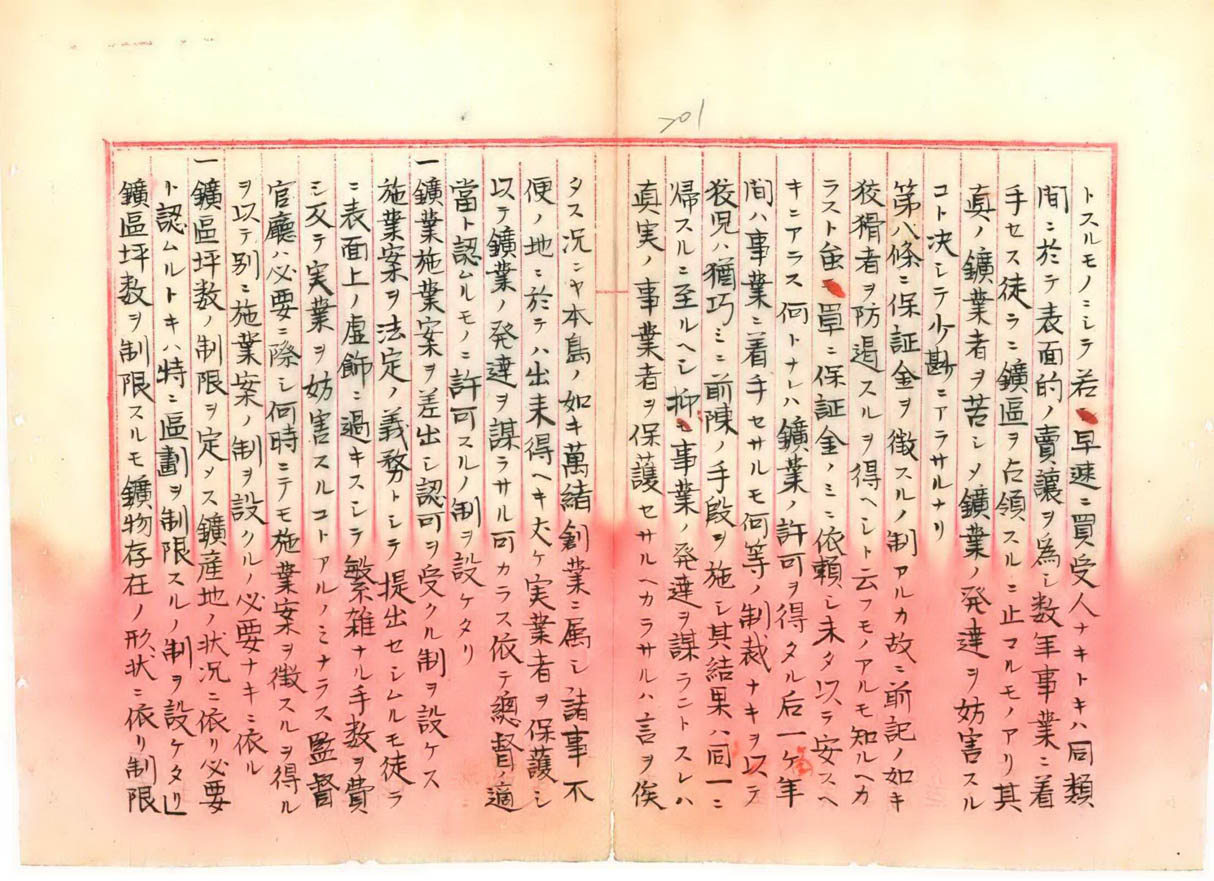 701
トスルモノニシテ若シ早速ニ買受人ナキトキハ同類
間ニ於テ表面的ノ賣讓ヲ為シ数年事業ニ着
手セス徒ラニ鑛區ヲ占領スルニ止マルモノアリ其
真ノ鑛業者ヲ苦シメ鑛業ノ発達ヲ妨害スル
コト决シテ少尠ニアラサルナリ
第八條ニ保証金ヲ徴スルノ制アルカ故ニ前記ノ如キ
狡猾者ヲ防遏スルヲ得ヘシト云フモノアルモ知ルヘカ
ラスト虽単ニ保証金ノミニ依頼シ未タ以テ安スヘ
キニアラス何トナレハ鑛業ノ許可ヲ得タル后一ケ年
間ハ事業ニ着手セサルモ何等ノ制裁ナキヲ以テ
狡児ハ猶巧ミニ前陳ノ手段ヲ施シ其結果ハ同一ニ
帰スルニ至ルヘシ抑事業ノ発達ヲ謀ラントスレハ
真実ノ事業者ヲ保護セサルヘカラサルハ言ヲ俟
タス况ンヤ本島ノ如キ萬緒創業ニ属シ諸事不
便ノ地ニ於テハ出来得ヘキ丈ケ実業者ヲ保護シ
以テ鑛業ノ発達ヲ謀ラサル可カラス依テ總督ノ適
當ト認ムルモノニ許可スルノ制ヲ設ケタリ
一鑛業施業案ヲ差出シ認可ヲ受クル制ヲ設ケス
施業案ヲ法定ノ義務トシテ提出セシムルモ徒ラ
ニ表面上ノ虚飾ニ過キスシテ繁雑ナル手数ヲ費
シ反テ実業ヲ妨害スルコトアルノミナラス監督
官廳ハ必要ニ際シ何時ニテモ施業案ヲ徴スルヲ得ル
ヲ以テ別ニ施業案ノ制ヲ設クルノ必要ナキニ依ル
一鑛區坪数ノ制限ヲ定メス鑛産地ノ状况ニ依リ必要
ト認ムルトキハ特ニ區劃ヲ制限スルノ制ヲ設ケタリ
鑛區坪数ヲ制限スルモ鑛物存在ノ形状ニ依リ制限